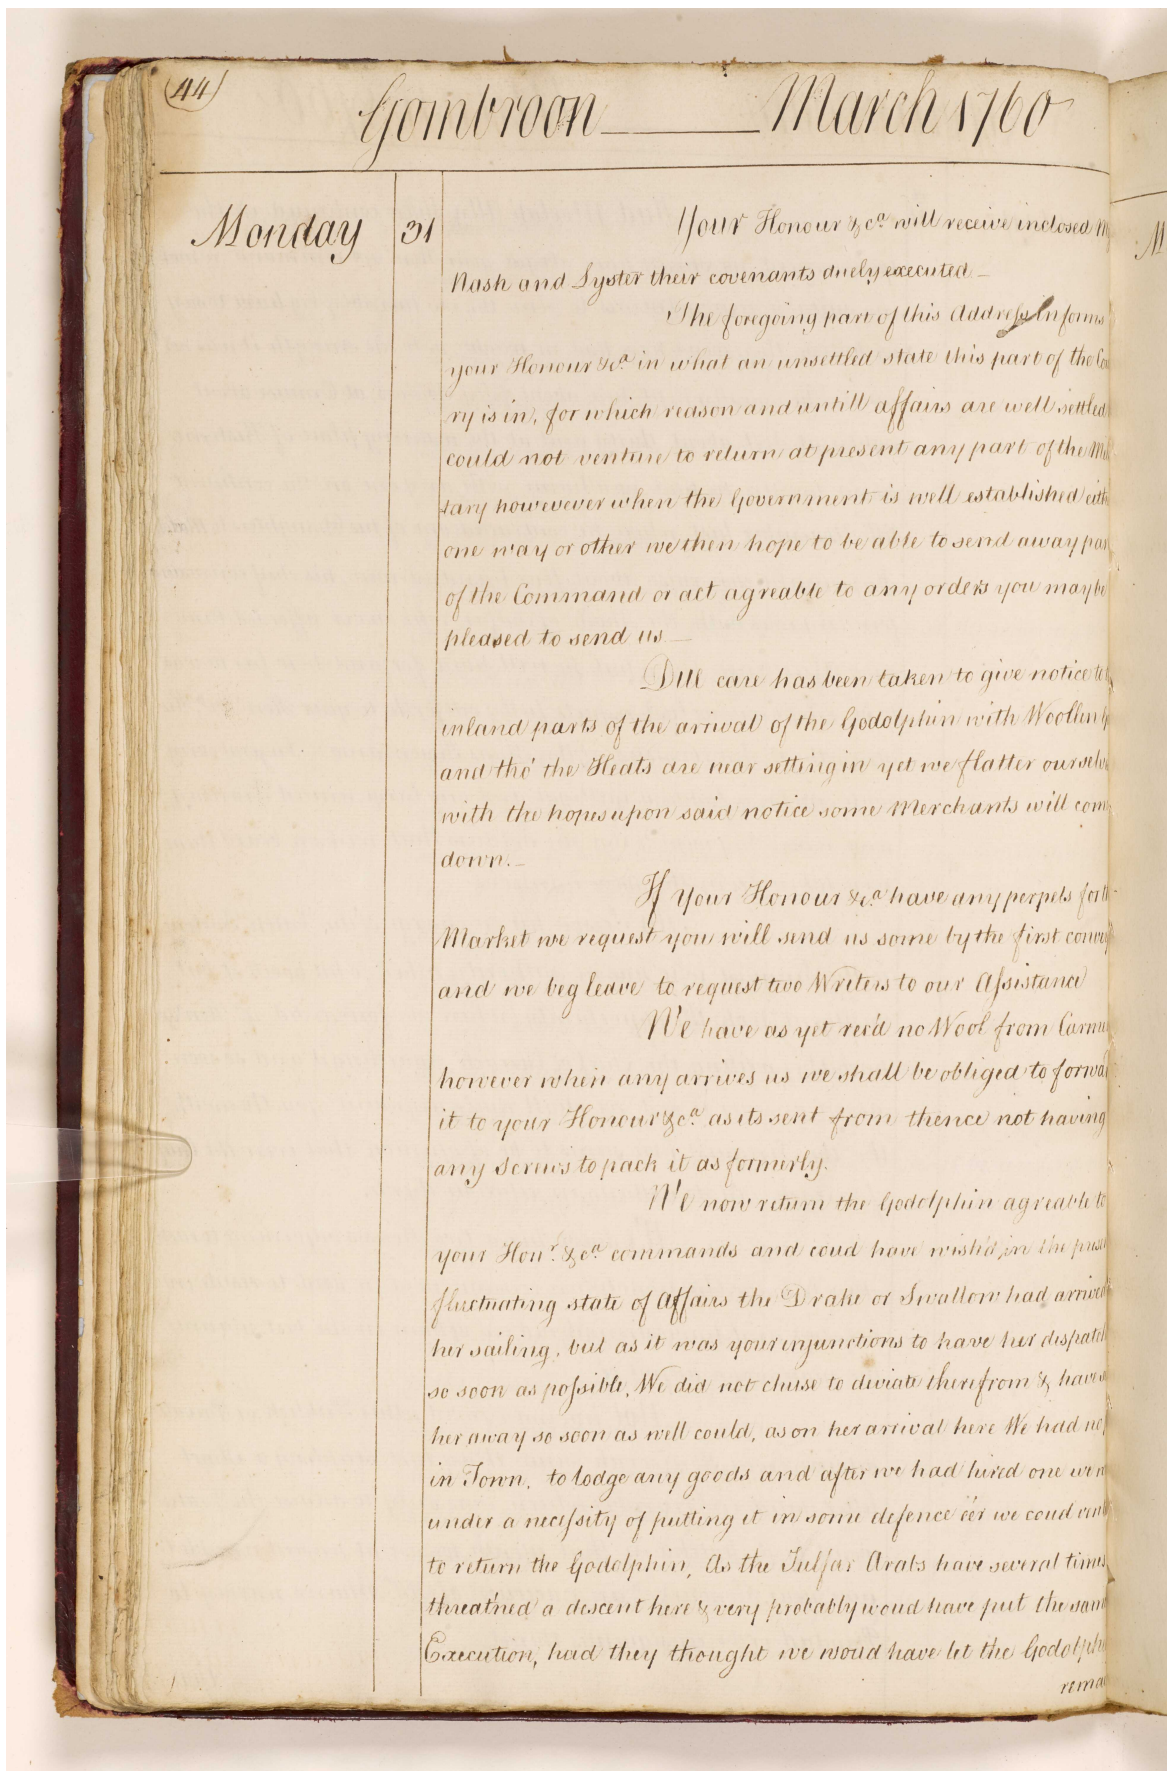 44
Gombroon March 1760
Monday 31 Your Honour &ca. will receive inclosed
Nash and Lyster their covenants duely executed
The foregoing part of this Address Informs
your Honour &ca. in what an unsettled state this part of the
ry is in, for which reason and untill affairs are well settled
could not venture to return at present any part of the
tary howevever when the Government is well established
one way or other we then hope to be able to send away
of the Command or act agreable to any orders you may be
pleased to send us
Due care has been taken to give notice to
inland parts of the arrival of the Godolphin with Woollen
and tho' the Heats are near setting in yet we flatter ourselve
with the hopes upon said notice some Merchants will com
down.
If Your Honour &ca. have any perpets for
Market we request you will send us some by the first
and we beg leave to request two Writers to our Assistance
We have as yet rec'd no Wool from Carm
however when any arrives us we shall be obliged to forwa
it to your Honour &ca. as its sent from thence not having
any Screws to pack it as formerly.
We now return the Godolphin agreable to
your Honr. &ca. commands and coud have wish'd, in the
fluctuating state of Affairs the Drake or Swallow had arrived
her sailing, but as it was your injunctions to have her dispatch
so soon as possible, We did not chuse to deviate therefrom & have
her away so soon as well could, as on her arrival here We had no
in Town, to lodge any goods and after we had hired one were
under a necessity of putting it in some defence e'er we coud
to return the Godolphin, As the Julfar Arabs have several times
threat'ned a descent here & very probably woud have put the same
Execution, had they thought we woud have let the Godolphi
rema
M